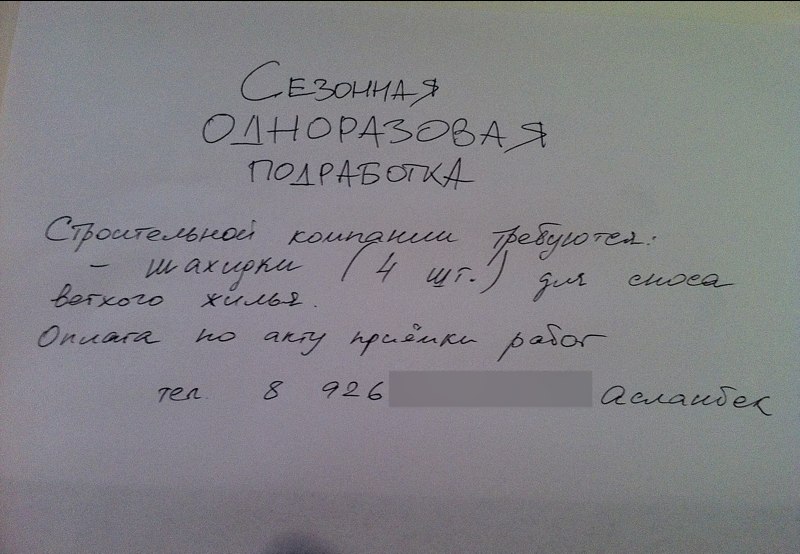 Сезонная
одноразовая
подработка
Строительной компании требуются:
- шахидки (4 шт.) для сноса
ветхого жилья.
Оплата по акту приёмки работ
тел. 8 926 Асланбек